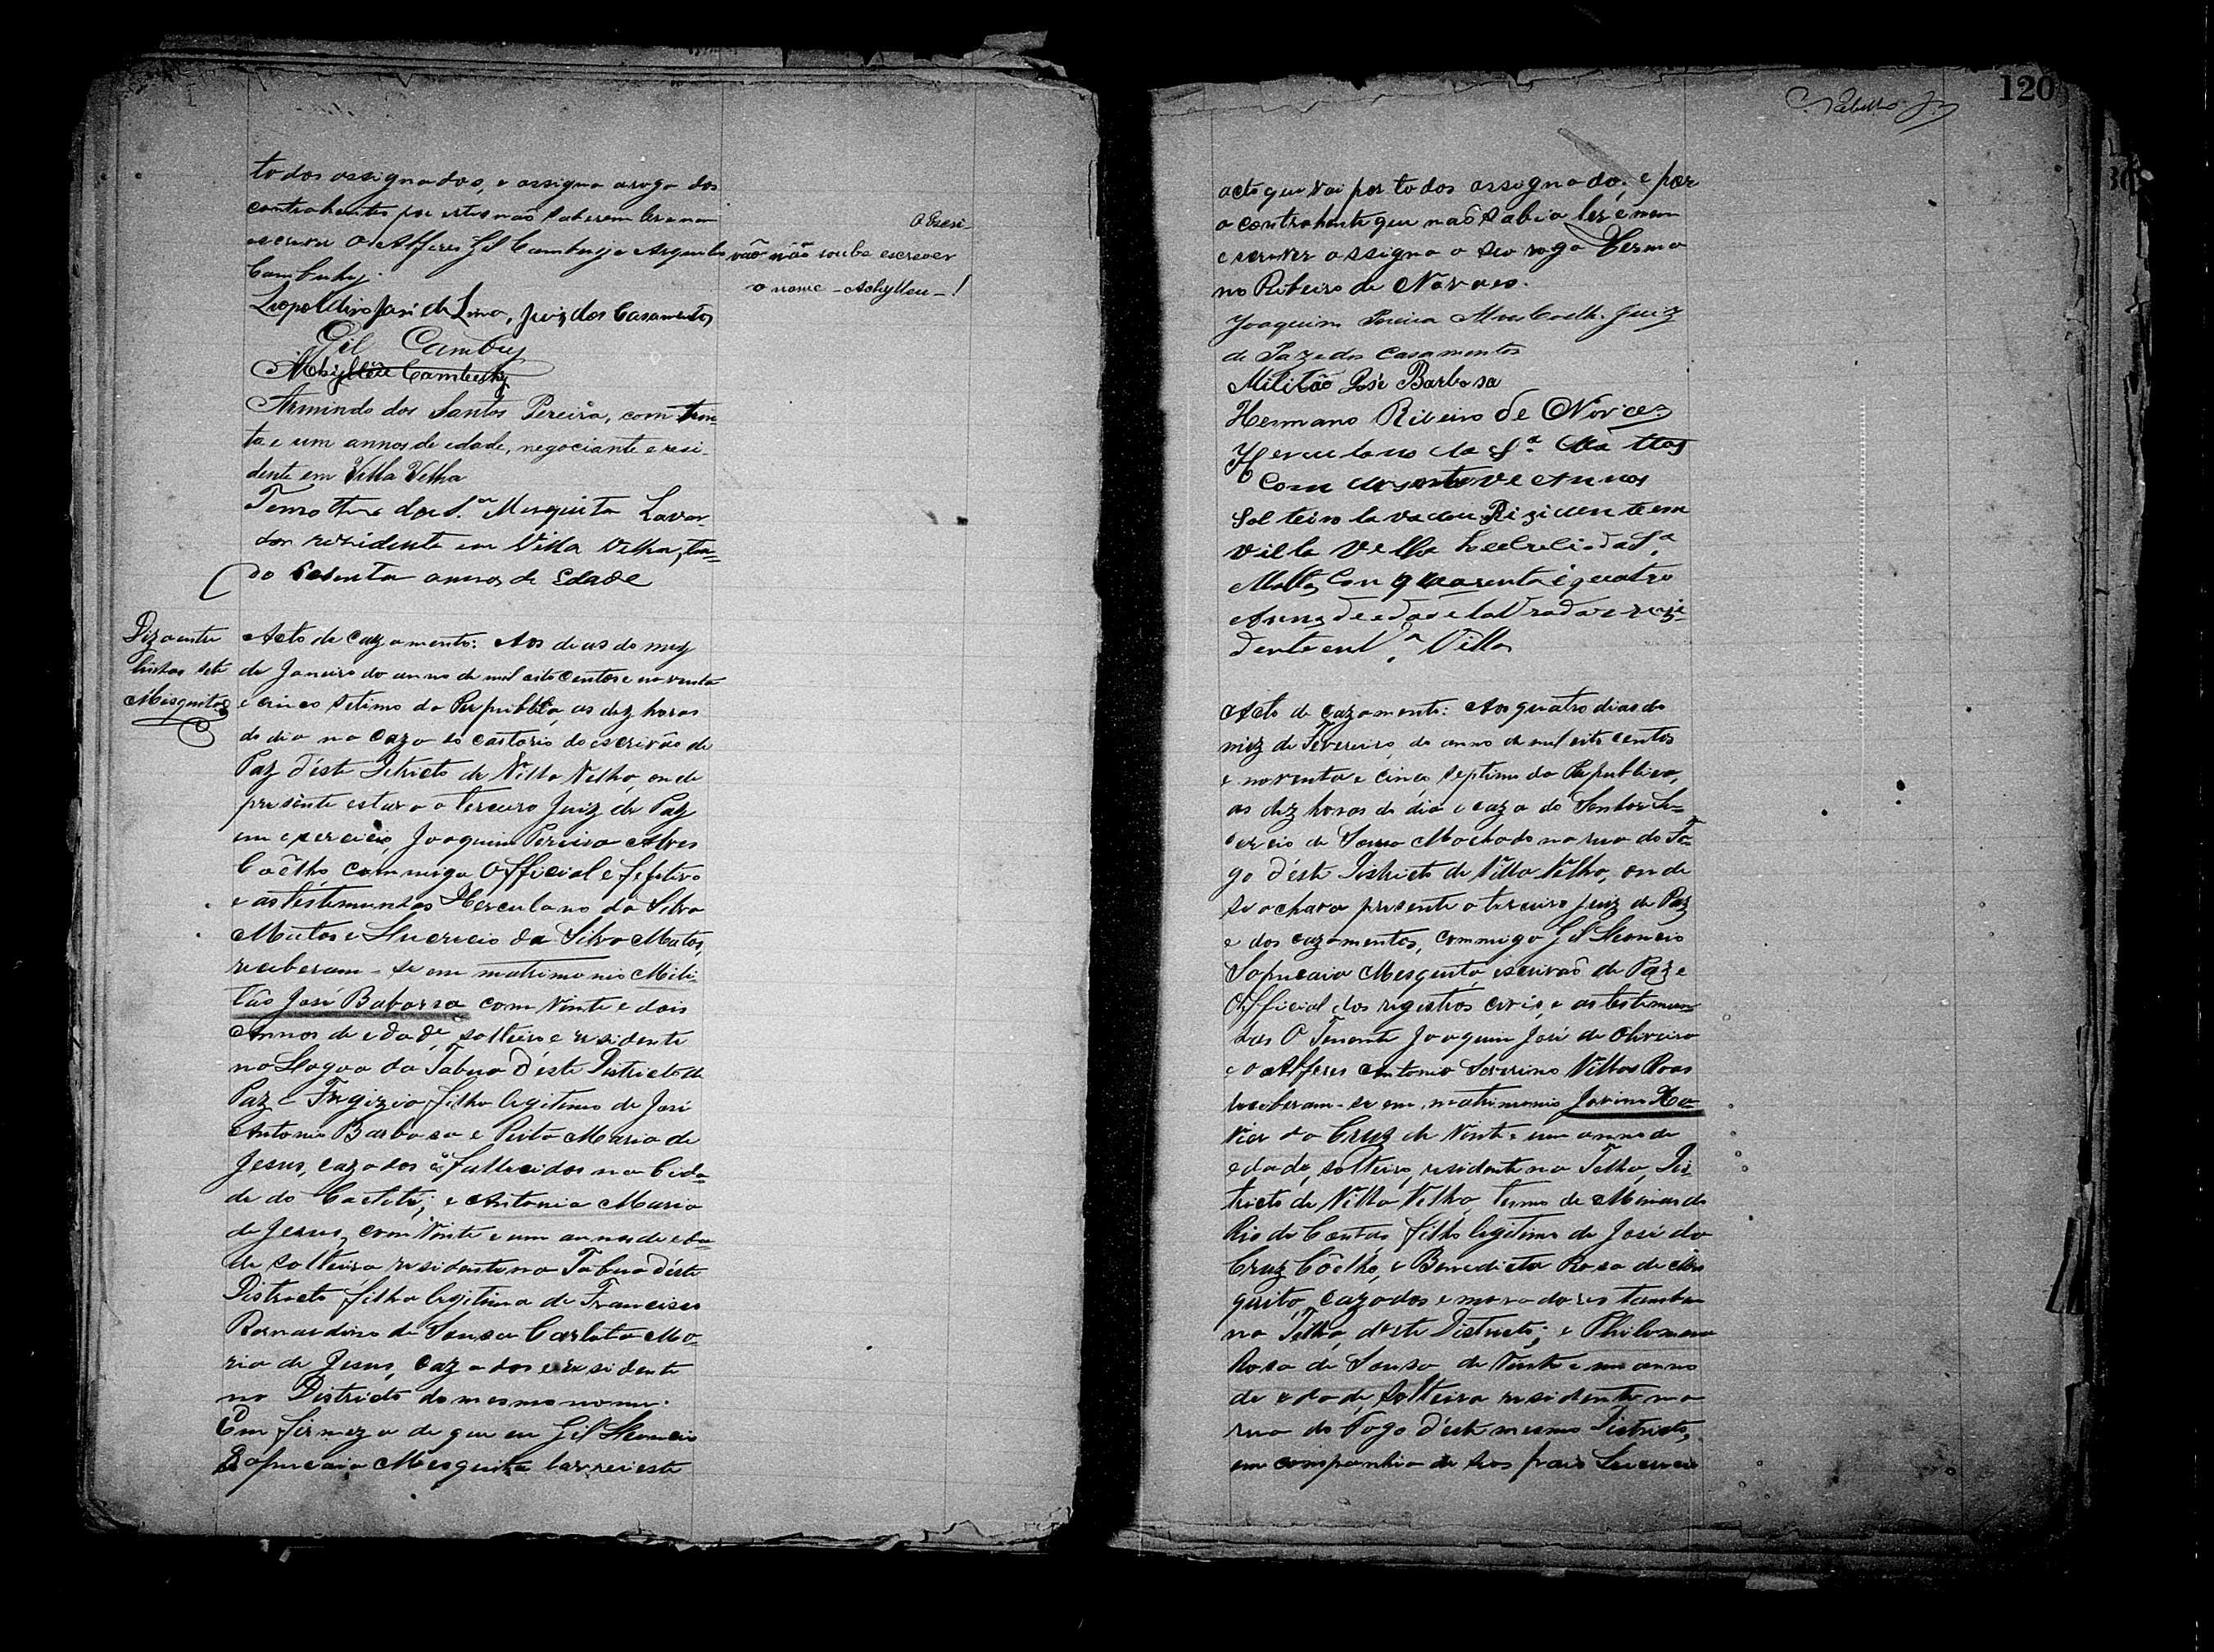 todos assignados, e assigna arogo dos
contrahentes por estes não saberem ler e nem
escrever O Alferes Gil Cambuy e
Cambuhy.
Leopoldino José de Lima, Juiz dos Casamentos
Gil Cambuy
Achylleu Cambuhy
Armindo dos Santos Pereira, com trin-
ta e um annos de edade, negociante e resi-
dente em Villa Velha
da S.ª Mesquita Lavra-
dor residente em Villa Velha, ten-
do annos de Edade
O Escri-
vão não soube escrever
o nome - Achylleu - !
Digo entre
linhas sete
Mesquita
Acto de cazamento: Aos do mez
de Janeiro do anno de mil oito centos e noventa
e cinco setimo da Republica, as dez horas
do dia na caza do cartorio do escrivão de
Paz d'éste Districto de Villa Velha, onde
presente estava o terceiro Juiz de Paz
em exercicio, Joaquim Pereira Alves
Coêlho, commigo Official effectivo
e as testimunhas Herculano da Silva
Matos e da Silva Matos,
receberam-se em matrimonio Mili-
tão José Baborsa com vinte e dois
Annos de edade, solteiro e residente
na Lagoa da Tabua d'éste Districto de
Paz e filho legitimo de José
Antonio Barbosa e Maria de
Jesus, cazados e fallecidos na Cida-
de do Caeteté; e Antonia Maria
de Jesus, com vinte e um annos de eda-
de solteira residente na Tabua d'éste
Districto filha legitima de Francisco
Bernardino de Souza Carlota Ma-
ria de Jesus, cazados e residente
no Districto do mesmo nome.
Em firmeza de que eu Gil Leoncio
Sapucaia Mesquita larrei este
120
acto que vai por todos assignado; e por
o contrahente que não sabia ler e nem
escrever assigna o seo rogo Herma
no Ribeiro de Novaes.
Joaquim Pereira Alves Coelho Juiz
de Paz e dos Casamentos
Militão José Barbosa
Hermano Ribeiro de Novaes
Herculano da S.ª Mattos
Com annos
Solteiro lavrador Rizidente em
Villa Velha da S.ª
Mattos Com quarenta e quatro
Annos de edade lavrador e rezi-
dente em V.ª Villa
Acto de cazamento: Aos quatro dias do
mez de Fevereiro, do anno de mil oito centos
e noventa e cinco, septimo da Republica,
as dez horas do dia e caza do Senhor Lu-
cercio de Souza Machado na rua do Fo-
go d'éste Districto de Villa Velha, onde
se achava presente o terceiro juiz de Paz
e dos cazamentos, commigo Gil Leoncio
Sapucaia Mesquita, escrivão de Paz e
Official dos registros civis, e as testimun-
has O Tenente Joaquim José de Oliveira
e o Alferes Antonio Severino Villas Boas
receberam-se em matrimonio Jovino Xa-
vier da Cruz de vinte e um annos de
edade, solteiro, residente na Telha, Dis-
tricto de Villa Velha, termo de Minas do
Rio de Contas, filho legitimo de José da
Cruz Coêlho, e Benedicta Rosa de Mes
quita, cazados e moradores tambem
na Telha, deste Districto; e Philomena
Rosa de Souza de vinte e um anno
de edade, solteira residente na
rua do Fogo d'éste mesmo Districto,
em companhia de seos pais